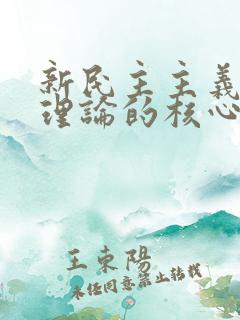 新民主主義
理論的核心
王東陽
未經同意禁止轉載